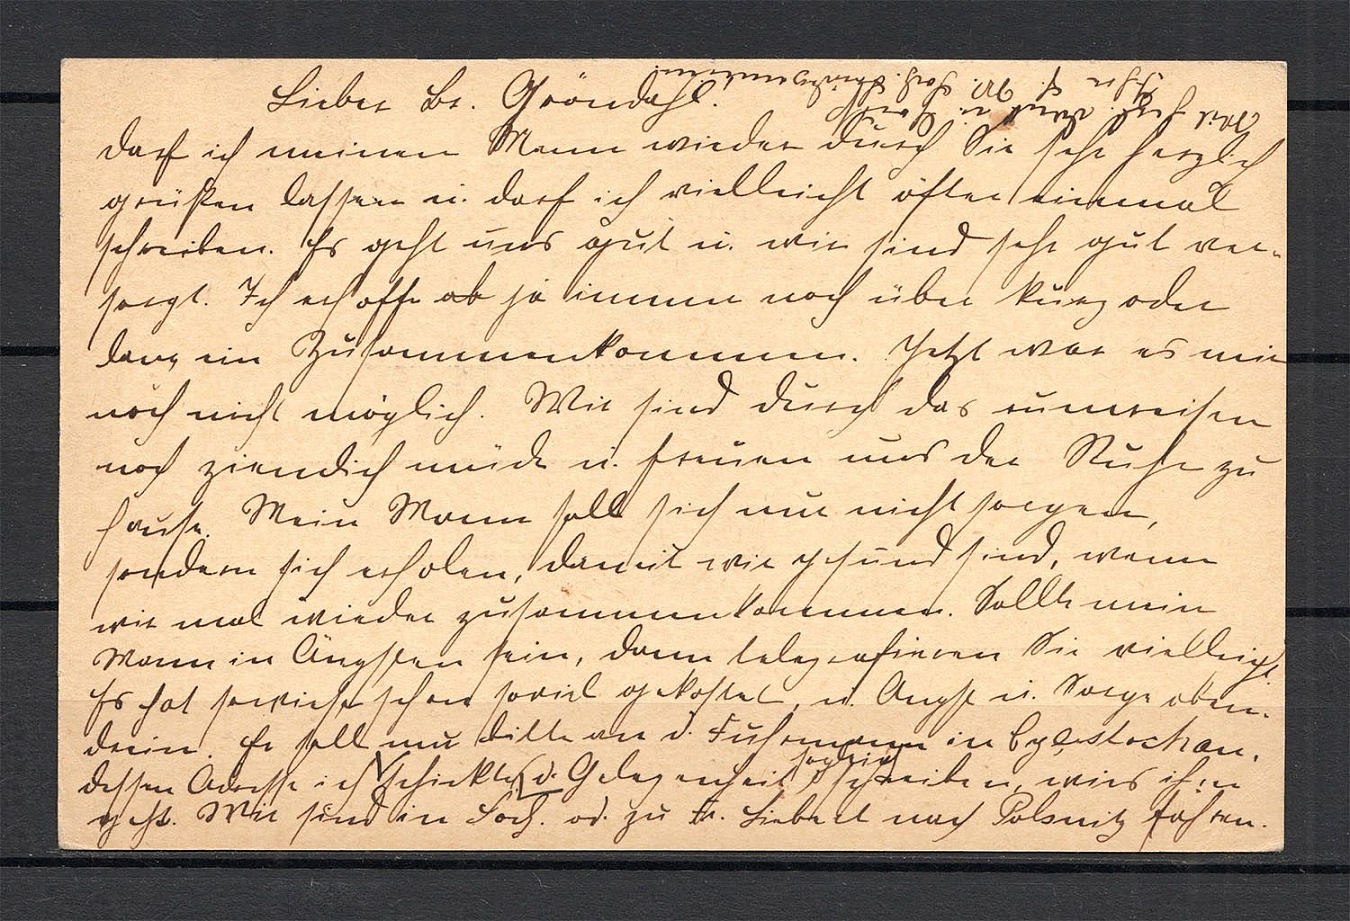 Lieber Br. Gröndahl.
darf ich meinen Mann wieder durch Sie sehr herzlich
grüßen lassen u. darf ich vielleicht öfter einmal
schreiben. Es geht uns gut u. wir sind sehr gut ver-
sorgt. Ich erhoffe ab ja immer noch über kurz oder
lang ein Zusammenkommen. Jetzt war es mir
noch nicht möglich. Wir sind durch das rumreisen
noch ziemlich müde u. freuen uns der Ruhe zu
hause. Mein Mann soll sich nur nicht sorgen,
sondern sich erholen, damit wir gesund sind, wenn
wir mal wieder zusammenkommen. Sollte mein
Mann in Ängsten sein, dann telegrafieren Sie vielleicht.
Es hat sowieso schon soviel gekostet, u. Angst u. Sorge oben-
drein. Er soll nur bitte an d. Fuhrmann in
dessen Adresse ich schickte, d. Gelegenheit schreiben, wies ihm
geht. Wir sind in Soch. od. zu Fr. Liebert nach Polsnitz fahren.
Mit herzl. Dank u. Gruß
Ihre